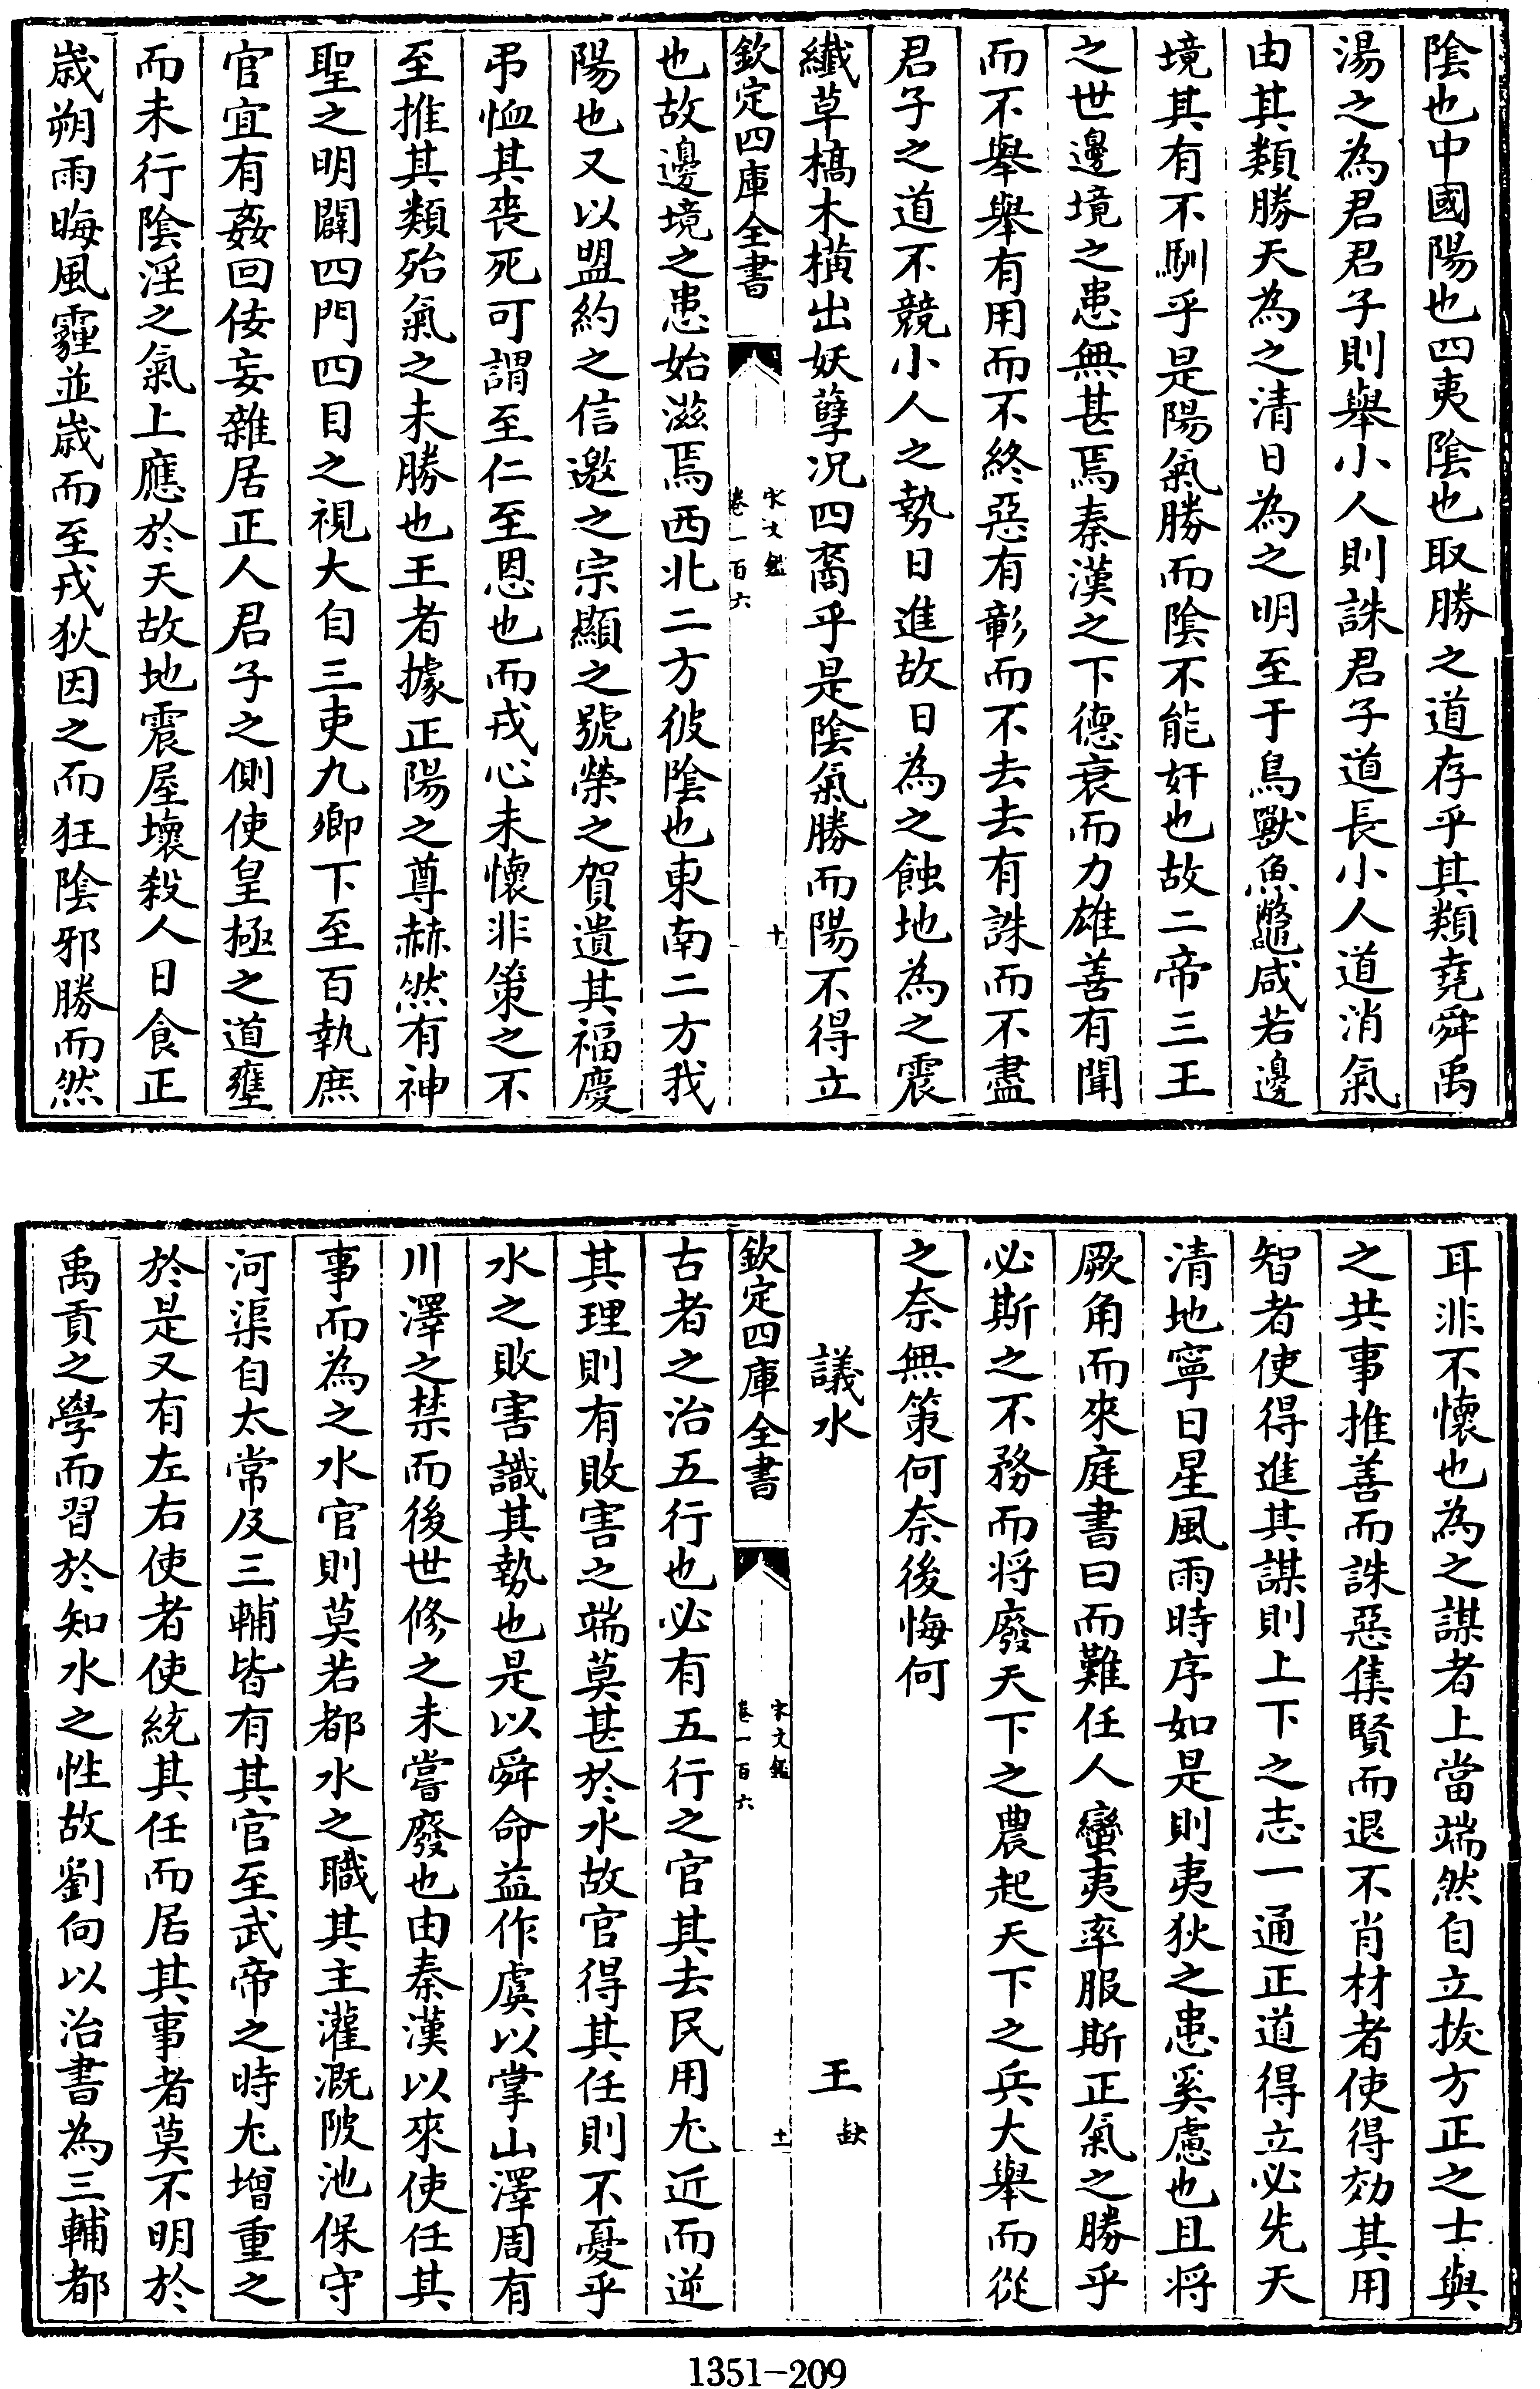 陰也中國陽也四夷陰也取勝之道存乎其類堯舜禹
湯之為君君子則舉小人則誅君子道長小人道消氣
由其類勝天為之清日為之明至于鳥獸魚鼈咸若邊
境其有不馴乎是陽氣勝而陰不能奸也故二帝三王
之世邊境之患無甚焉秦漢之下德衰而力雄善有聞
而不舉舉有用而不終惡有彰而不去去有誅而不盡
君子之道不競小人之勢日進故日為之蝕地為之震
纎草槁木橫出妖孽况四裔乎是陰氣勝而陽不得立
欽定四庫全書
宋文鑑
卷一百六
十
也故邊境之患始滋焉西北二方彼陰也東南二方我
陽也又以盟約之信邀之宗顯之號榮之賀遺其福慶
弔恤其喪死可謂至仁至恩也而戎心未懷非策之不
至推其類殆氣之未勝也王者據正陽之尊赫然有神
聖之明闢四門四目之視大自三吏九卿下至百執庶
官宜有姦回佞妄雜居正人君子之側使皇極之道壅
而未行陰淫之氣上應於天故地震屋壞殺人日食正
歲朔雨晦風霾並歲而至戎狄因之而狂陰邪勝而然
耳非不懷也為之謀者上當端然自立拔方正之士與
之共事推善而誅惡集賢而退不肖材者使得効其用
智者使得進其謀則上下之志一通正道得立必先天
清地寧日星風雨時序如是則夷狄之患奚慮也且將
厥角而來庭書曰而難任人蠻夷率服斯正氣之勝乎
必斯之不務而将廢天下之農起天下之兵大舉而從
之奈無策何奈後悔何
議水
王
缺
欽定四庫全書
宋文鑑
卷一百六
十一
古者之治五行也必有五行之官其去民用尤近而逆
其理則有敗害之端莫甚於水故官得其任則不憂乎
水之敗害識其勢也是以舜命益作虞以掌山澤周有
川澤之禁而後世修之未嘗廢也由秦漢以來使任其
事而為之水官則莫若都水之職其主灌溉陂池保守
河渠自太常及三輔皆有其官至武帝之時尤增重之
於是又有左右使者使統其任而居其事者莫不明於
禹貢之學而習於知水之性故劉向以治書為三輔都
1351-209